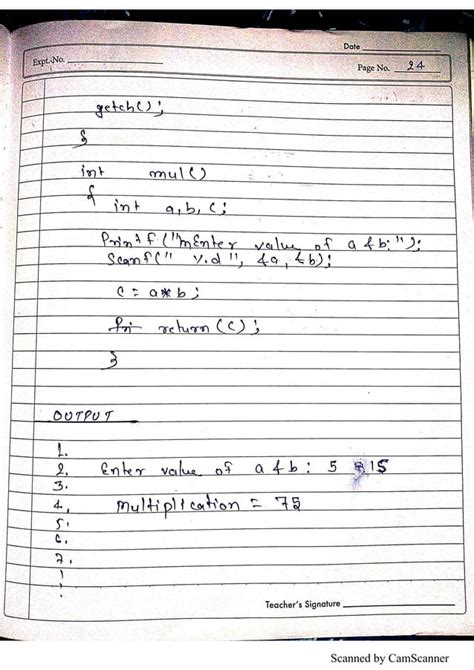 Date
Expt. No.
Page No. 24
getch();
}
int mul()
{
int a, b, c;
Printf ("\nEnter value of a & b:");
Scanf(" %d", &a, &b);
c = a*b;
return (c);
}
OUTPUT
1.
2. Enter value of a & b : 5 15
3.
4, Multiplication = 75
5.
6.
7.
Teacher's Signature
Scanned by CamScanner